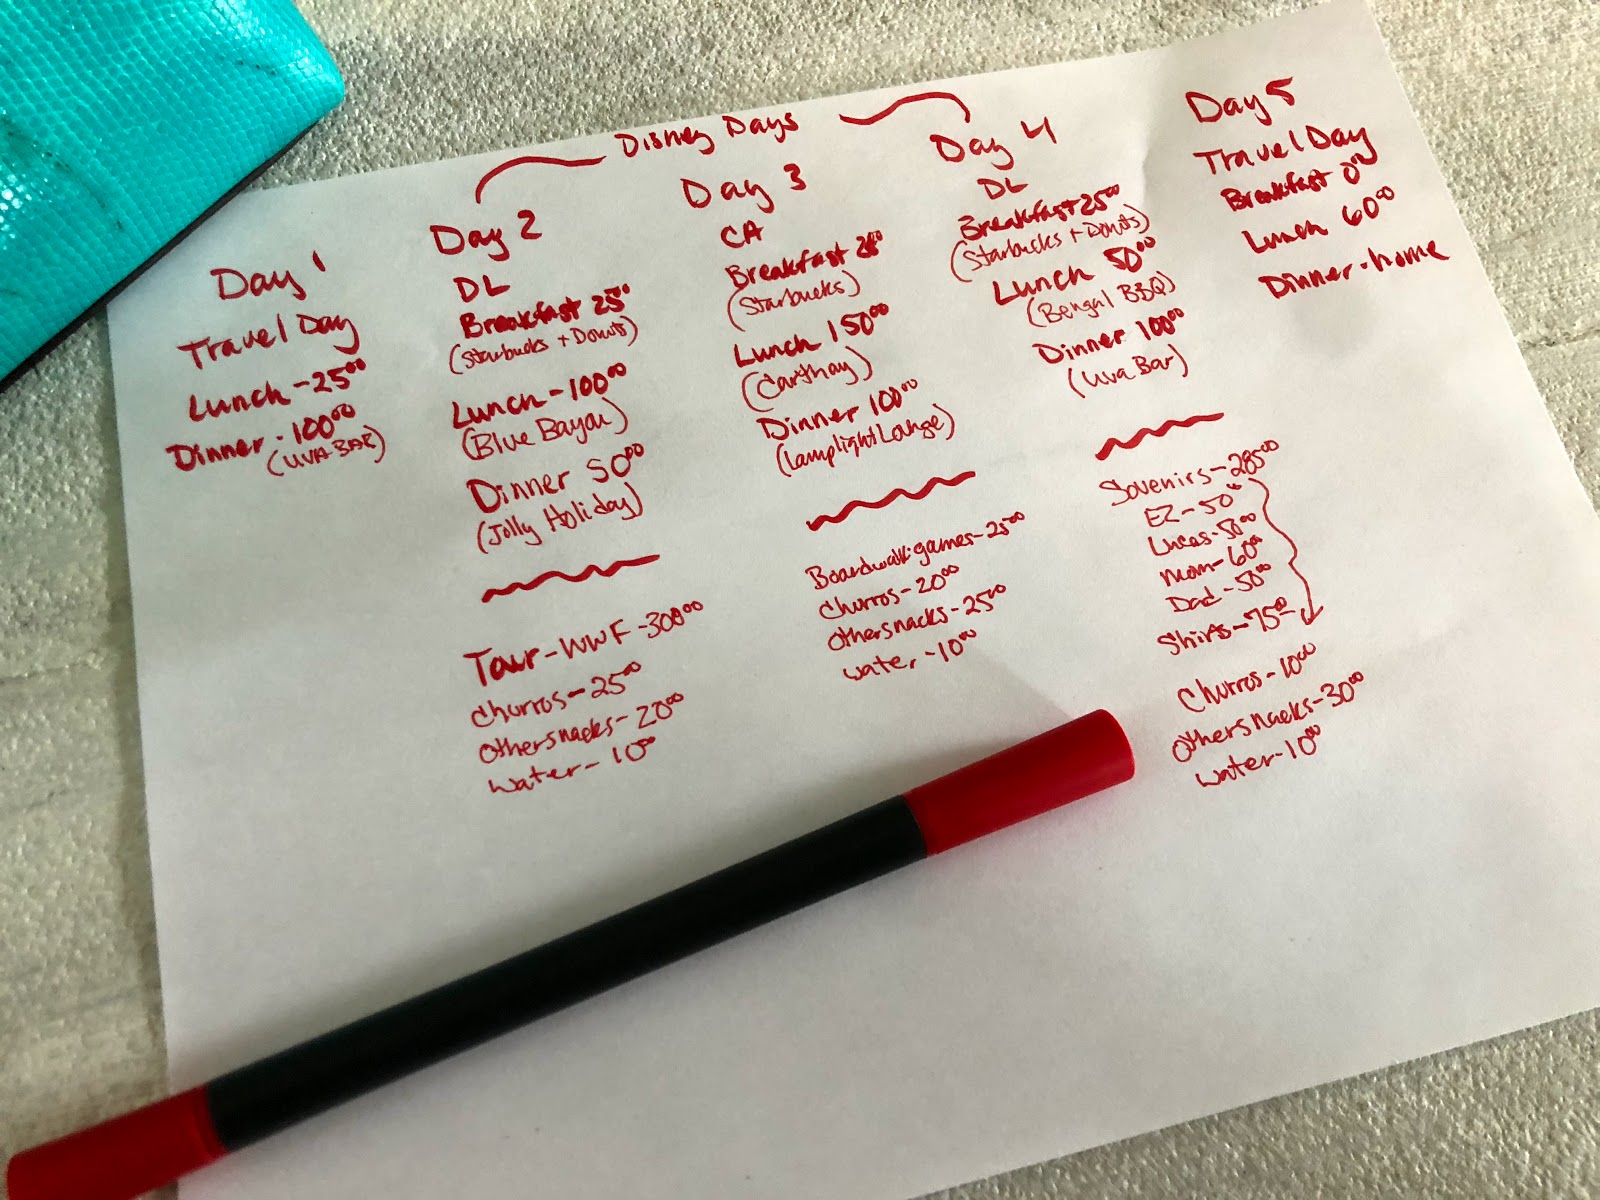 Disney Days
Day 1
Travel Day
Lunch - 25⁰⁰
Dinner - 100⁰⁰
(UVA BAR)
Day 2
DL
Breakfast 25⁰⁰
(Starbucks + Donuts)
Lunch - 100⁰⁰
(Blue Bayou)
Dinner 50⁰⁰
(Jolly Holiday)
Tour - WWF - 300⁰⁰
Churros - 25⁰⁰
Other snacks - 20⁰⁰
Water - 10⁰⁰
Day 3
CA
Breakfast
(Starbucks)
Lunch 150⁰⁰
(Carthay)
Dinner 100⁰⁰
(Lamplight Lounge)
Boardwalk games - 25⁰⁰
Churros - 20⁰⁰
Other snacks - 25⁰⁰
Water - 10⁰⁰
Day 4
DL
Breakfast 25⁰⁰
(Starbucks + Donuts)
Lunch 50⁰⁰
(Bengal BBQ)
Dinner 100⁰⁰
(Uva Bar)
Sovenirs - 285⁰⁰
EZ - 50⁰⁰
Lucas - 50⁰⁰
Mom - 60⁰⁰
Dad - 50⁰⁰
Shirts - 75⁰⁰
Churros - 10⁰⁰
Other snacks - 30⁰⁰
Water - 10⁰⁰
Day 5
Travel Day
Breakfast 0⁰⁰
Lunch 60⁰⁰
Dinner - home